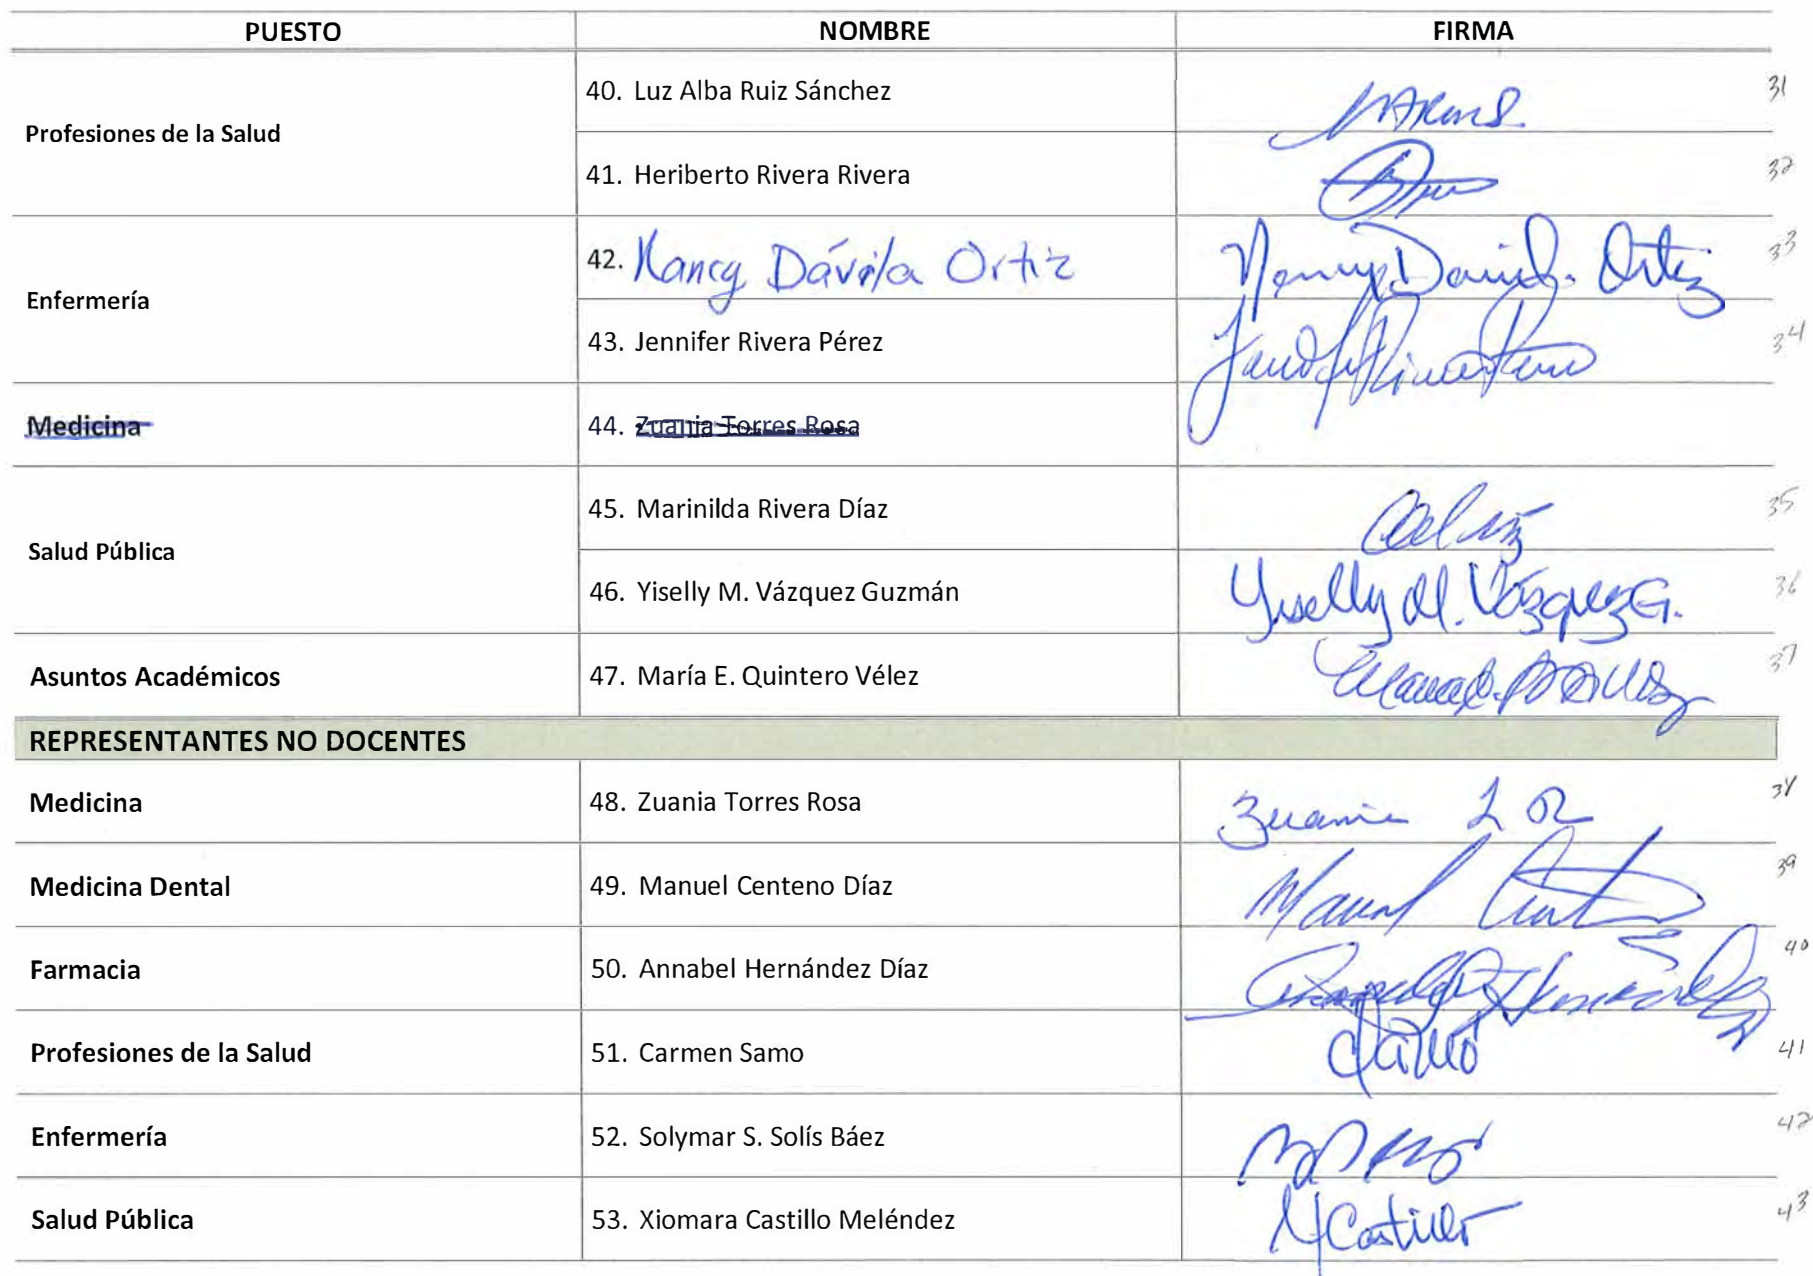 PUESTO NOMBRE FIRMA
Profesiones de la Salud
40. Luz Alba Ruiz Sánchez 31
41. Heriberto Rivera Rivera 32
Enfermería
42. Nancy Dávila Ortiz Nancy Davila Ortiz 33
43. Jennifer Rivera Pérez 34
Medicina 44. Zuania Torres Rosa
Salud Pública
45. Marinilda Rivera Díaz 35
46. Yiselly M. Vázquez Guzmán Yiselly M. Vázquez G. 36
Asuntos Académicos 47. María E. Quintero Vélez 37
REPRESENTANTES NO DOCENTES
Medicina 48. Zuania Torres Rosa Zuania 38
Medicina Dental 49. Manuel Centeno Díaz Manuel 39
Farmacia 50. Annabel Hernández Díaz Hernández 40
Profesiones de la Salud 51. Carmen Samo 41
Enfermería 52. Solymar S. Solís Báez 42
Salud Pública 53. Xiomara Castillo Meléndez XCastillo 43